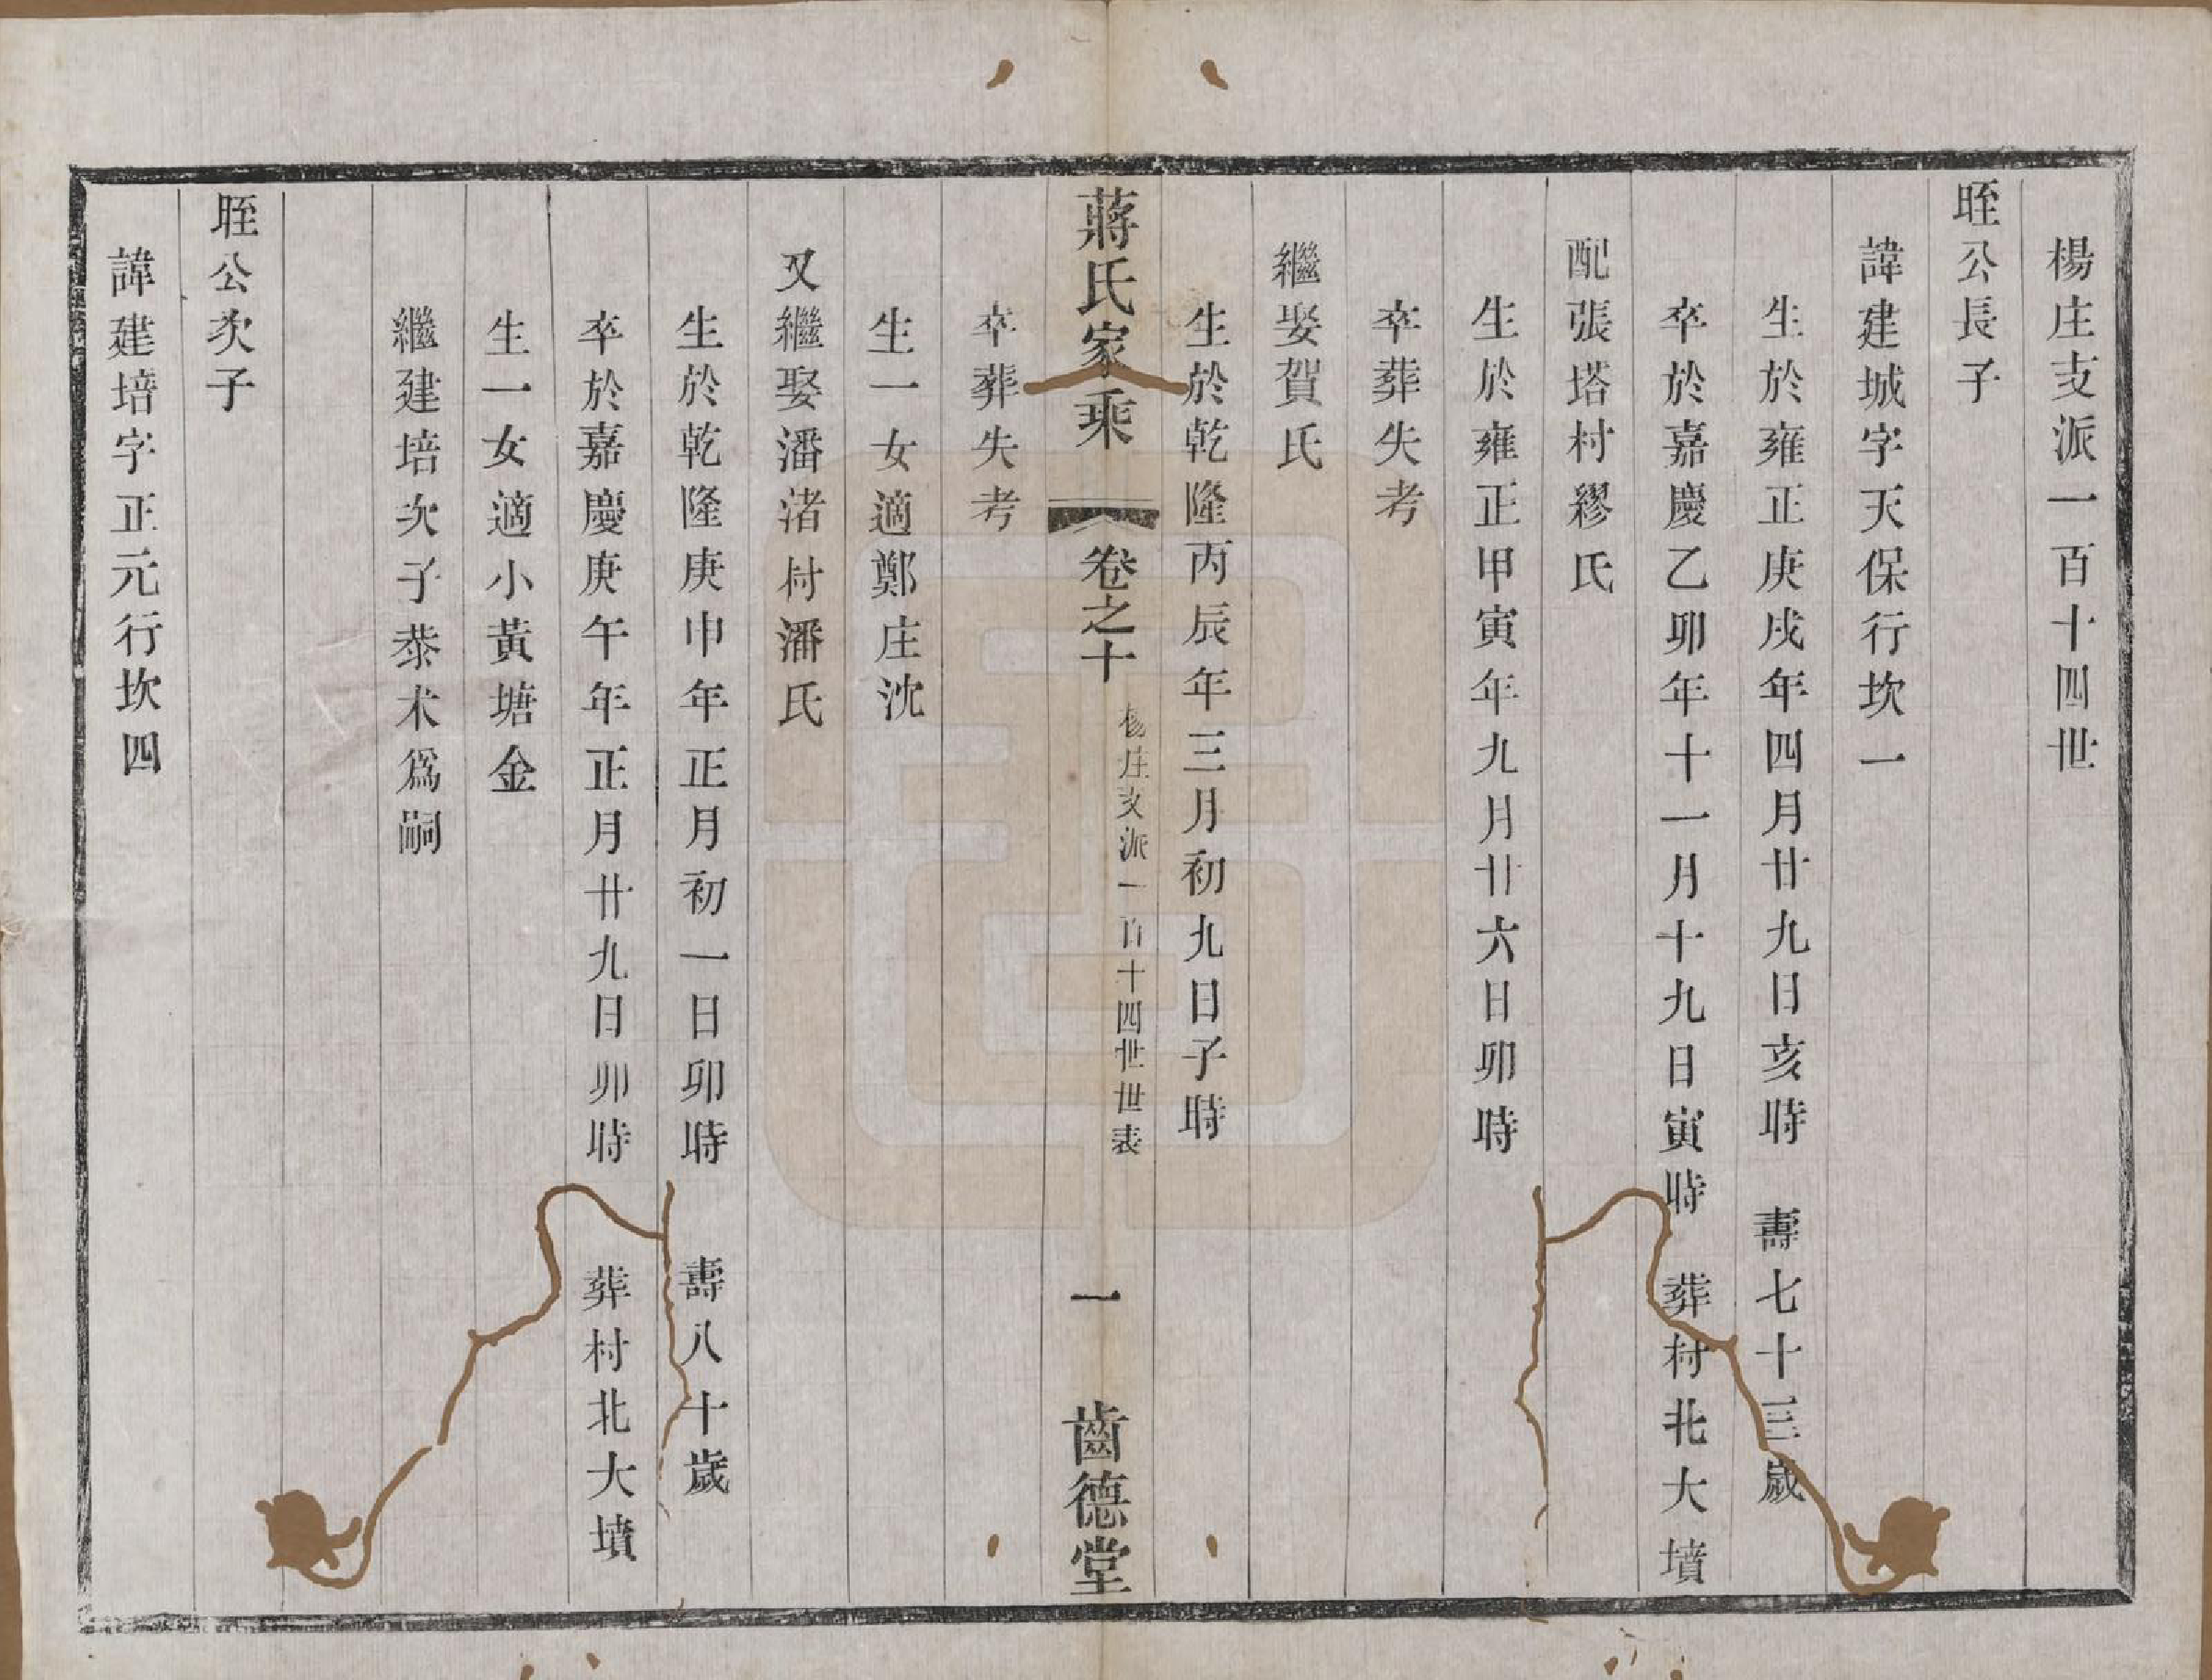 楊庄支派一百十四世
晊公長子
諱建城字天保行坎一
生於雍正庚戌年四月廿九日亥時 壽七十三歲
卒於嘉慶乙卯年十一月十九日寅時 葬村北大墳
配張塔村繆氏
生於雍正甲寅年九月廿六日卯時
卒葬失考
繼娶賀氏
生於乾隆丙辰年三月初九日子時
蔣氏家乘 卷之十 楊庄支派一百十四世世表 一 齒德堂
卒葬失考
生一女適鄭庄沈
又繼娶潘渚村潘氏
生於乾隆庚申年正月初一日卯時 壽八十歲
卒於嘉慶庚午年正月廿九日卯時 葬村北大墳
生一女適小黃塘金
繼建培次子恭术爲嗣
晊公次子
諱建培字正元行坎四